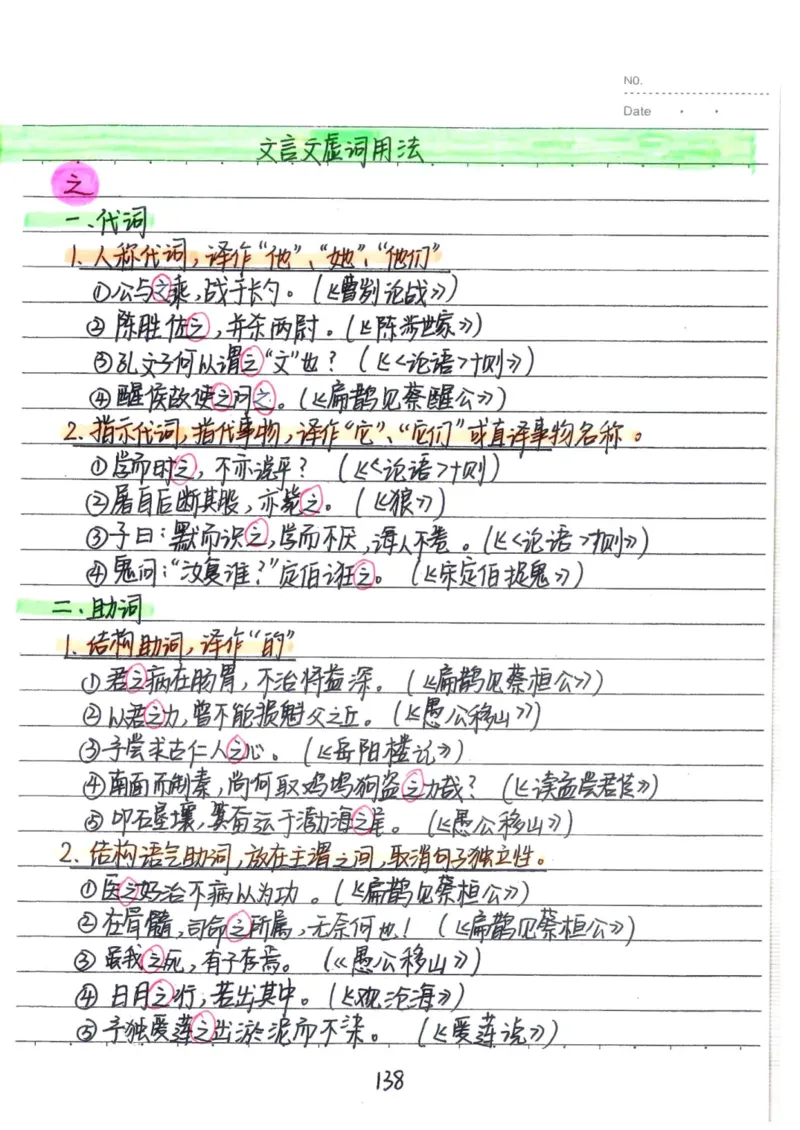 NO.
Date
文言文虚词用法
之
一、代词
1. 人称代词，译作“他”、“她”、“他们”
①公与之乘，战于长勺。（《曹刿论战》）
② 陈胜佐之，并杀两尉。（《陈涉世家》）
③孔文子何以谓之“文”也？（《<论语>十则》）
④ 醒侯故使之问之。（《扁鹊见蔡醒公》）
2. 指示代词，指代事物，译作“它”、“它们”或直译事物名称。
①学而时之，不亦说乎？（《<论语>十则）
②屠自后断其股，亦毙之。（《狼》）
③子曰：默而识之，学而不厌，诲人不卷。（《<论语>十则》）
④ 鬼问：“汝复谁？”定伯诳之。（《宋定伯捉鬼》）
二、助词
1. 结构助词，译作“的”
①君之病在肠胃，不治将益深。（《扁鹊见蔡桓公》）
②以君之力，曾不能损魁父之丘。（《愚公移山》）
③予尝求古仁人之心。（《岳阳楼记》）
④南面而制秦，尚何取鸡鸣狗盗之力哉？（《读孟尝君传》）
⑤ 叩石垦壤，箕畚运于渤海之尾。（《愚公移山》）
2. 结构语气助词，放在主谓之间，取消句子独立性。
①医之好治不病以为功。（《扁鹊见蔡桓公》）
②在骨髓，司命之所属，无奈何也！（《扁鹊见蔡桓公》）
③ 虽我之死，有子存焉。（《愚公移山》）
④ 日月之行，若出其中。（《观沧海》）
⑤ 予独爱莲之出淤泥而不染。（《爱莲说》）
138